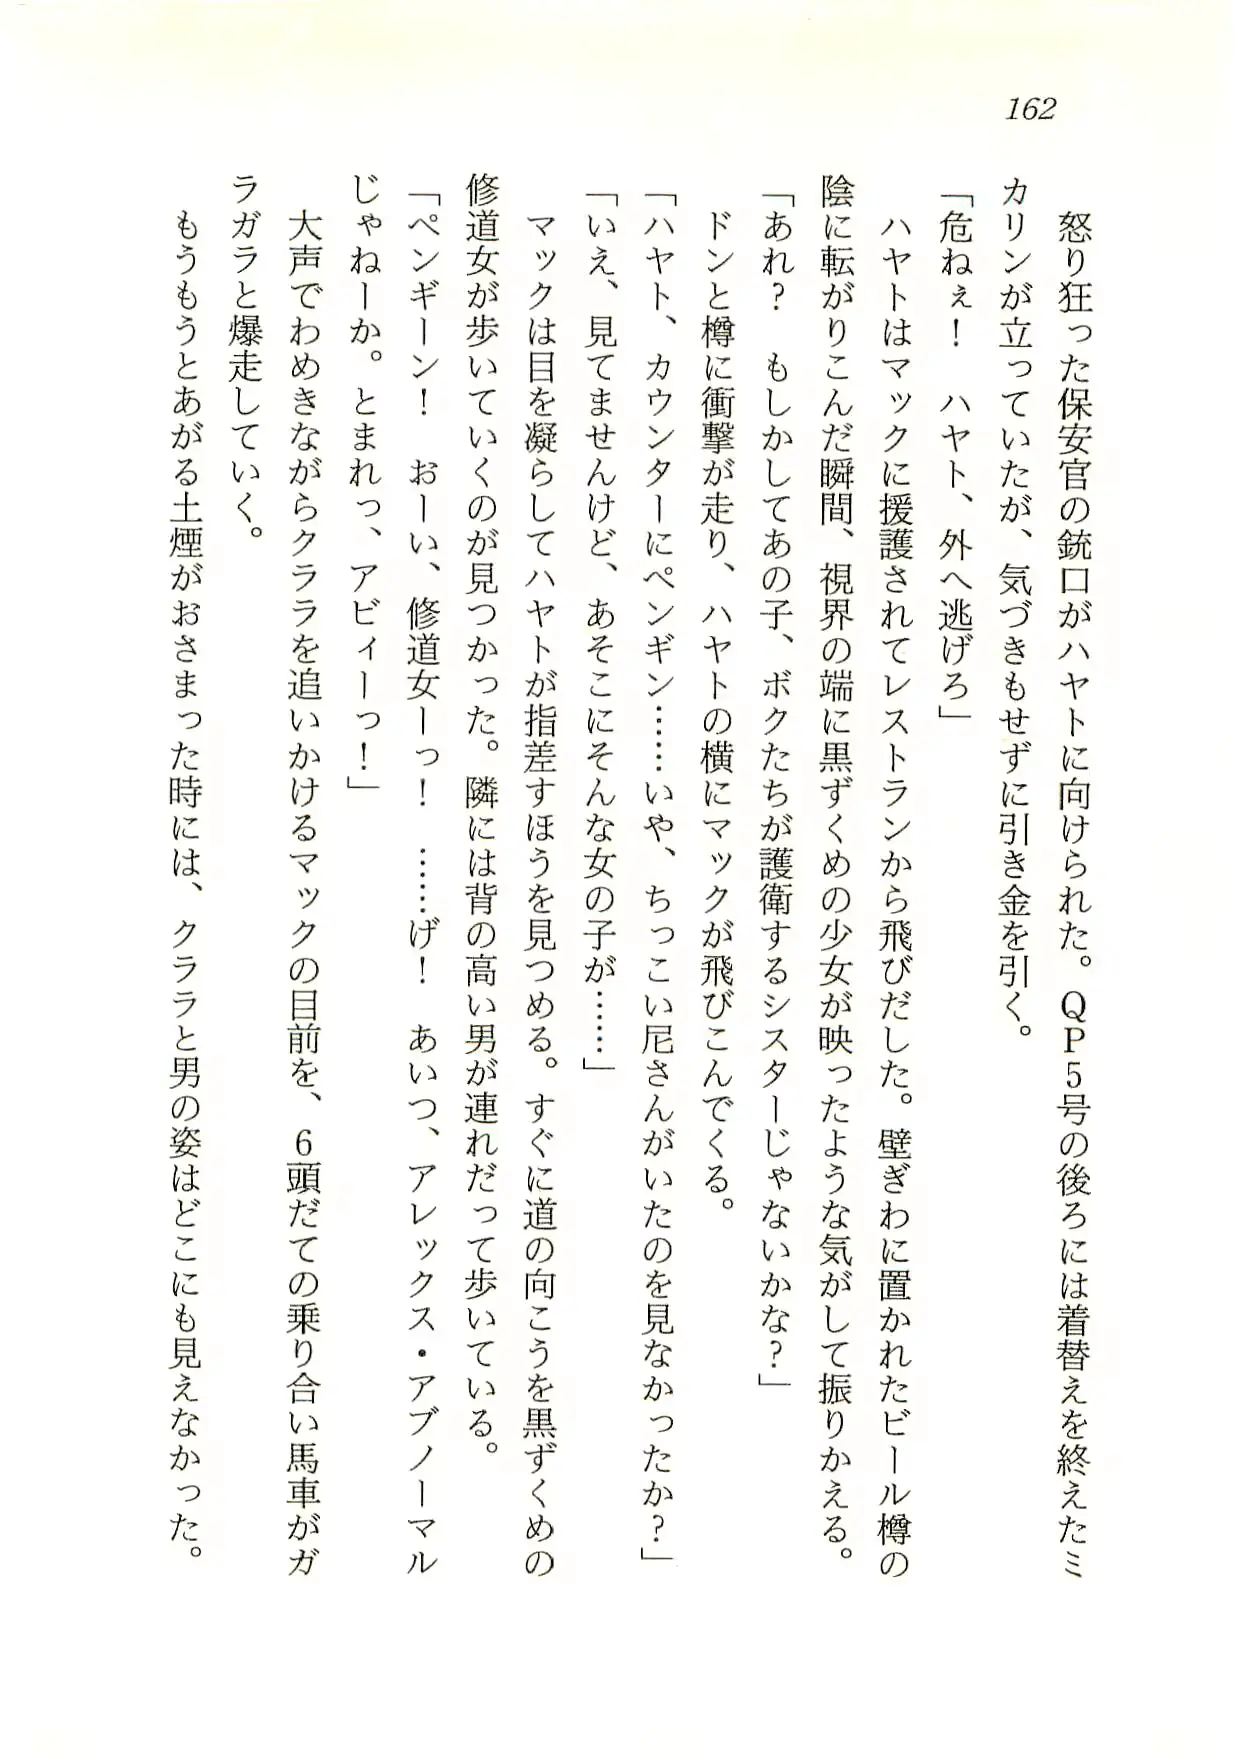 162
　怒り狂った保安官の銃口がハヤトに向けられた。ＱＰ５号の後ろには着替えを終えたミ
カリンが立っていたが、気づきもせずに引き金を引く。
「危ねぇ！　ハヤト、外へ逃げろ」
　ハヤトはマックに援護されてレストランから飛びだした。壁ぎわに置かれたビール樽の
陰に転がりこんだ瞬間、視界の端に黒ずくめの少女が映ったような気がして振りかえる。
「あれ？　もしかしてあの子、ボクたちが護衛するシスターじゃないかな？」
　ドンと樽に衝撃が走り、ハヤトの横にマックが飛びこんでくる。
「ハヤト、カウンターにペンギン……いや、ちっこい尼さんがいたのを見なかったか？」
「いえ、見てませんけど、あそこにそんな女の子が……」
　マックは目を凝らしてハヤトが指差すほうを見つめる。すぐに道の向こうを黒ずくめの
修道女が歩いていくのが見つかった。隣には背の高い男が連れだって歩いている。
「ペンギーン！　おーい、修道女ーっ！　……げ！　あいつ、アレックス・アブノーマル
じゃねーか。とまれっ、アビィーっ！」
　大声でわめきながらクララを追いかけるマックの目前を、６頭だての乗り合い馬車がガ
ラガラと爆走していく。
　もうもうとあがる土煙がおさまった時には、クララと男の姿はどこにも見えなかった。